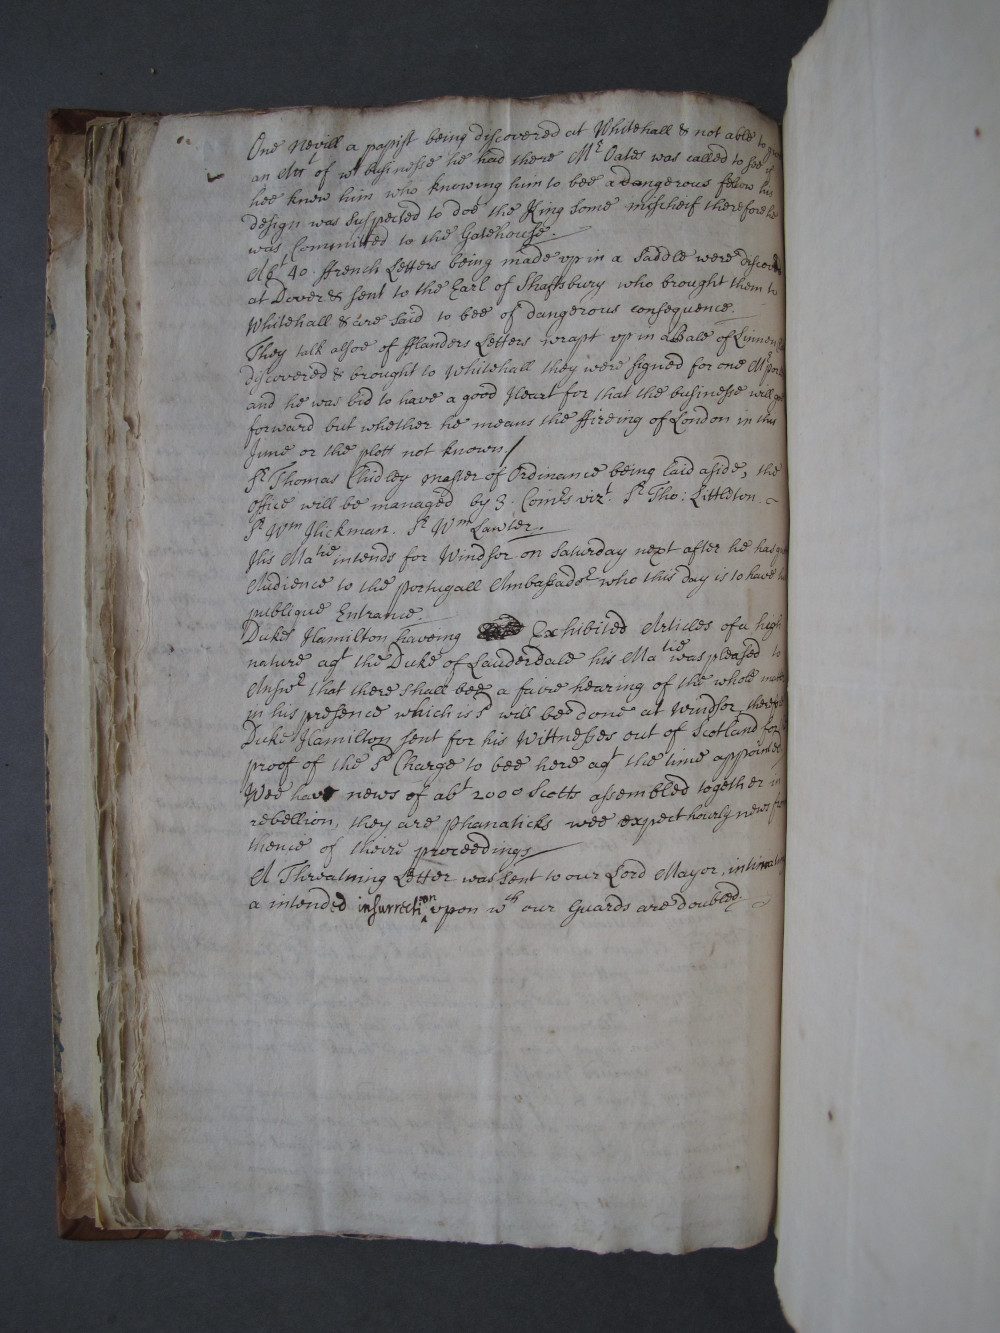 One Nevill a papist being discovered at Whitehall & not able to
an Act of wt businesse he had there Mr Oates was called to see if
hee knew him who knowing him to bee a dangerous fellow his
design was suspected to doe the King some mischeif therefore he
was Committed to the Gatehouse.
Abt 40. ffrench Letters being made vp in a Saddle were
at Dover & sent to the Earl of Shaftsbury who brought them to
Whitehall & are said to bee of dangerous consequence.
They talk alsoe of fflanders Letters wrapt vp in a Bale of Linnen
discovered & brought to Whitehall they were signed for one Mr
and he was bid to have a good Heart for that the businesse will
forward but whether he means the ffireing of London in this
June or the plott not known/
Sr Thomas Chidley master of Ordinance being laid aside, the
office will be managed by 3. Comrs vizt. Sr Tho: Littleton.
Sr Wm Hickman. Sr Wm Lawler.
His Matie intends for Windsor on Saturday next after he has
Audience to the portugall Ambassadr who this day is to have
publique Entrance.
Duke Hamilton haveing Exhibited Articles of a high
nature agt the Duke of Lauderdale his Matie was pleased to
Answr that there shall bee a faire hearing of the whole
in his presence which is sd will bee done at Windsor
Duke Hamilton sent for his Wittnesses out of Scotland for
proof of the sd Charge to bee here agt the time appointed
Wee have news of abt 2000 Scotts assembled together in
rebellion, they are phanaticks wee expect hourly news
thence of theire proceedings
A Threatning Letter was sent to our Lord Mayor,
a intended insurrection vpon wch our Guards are doubled.